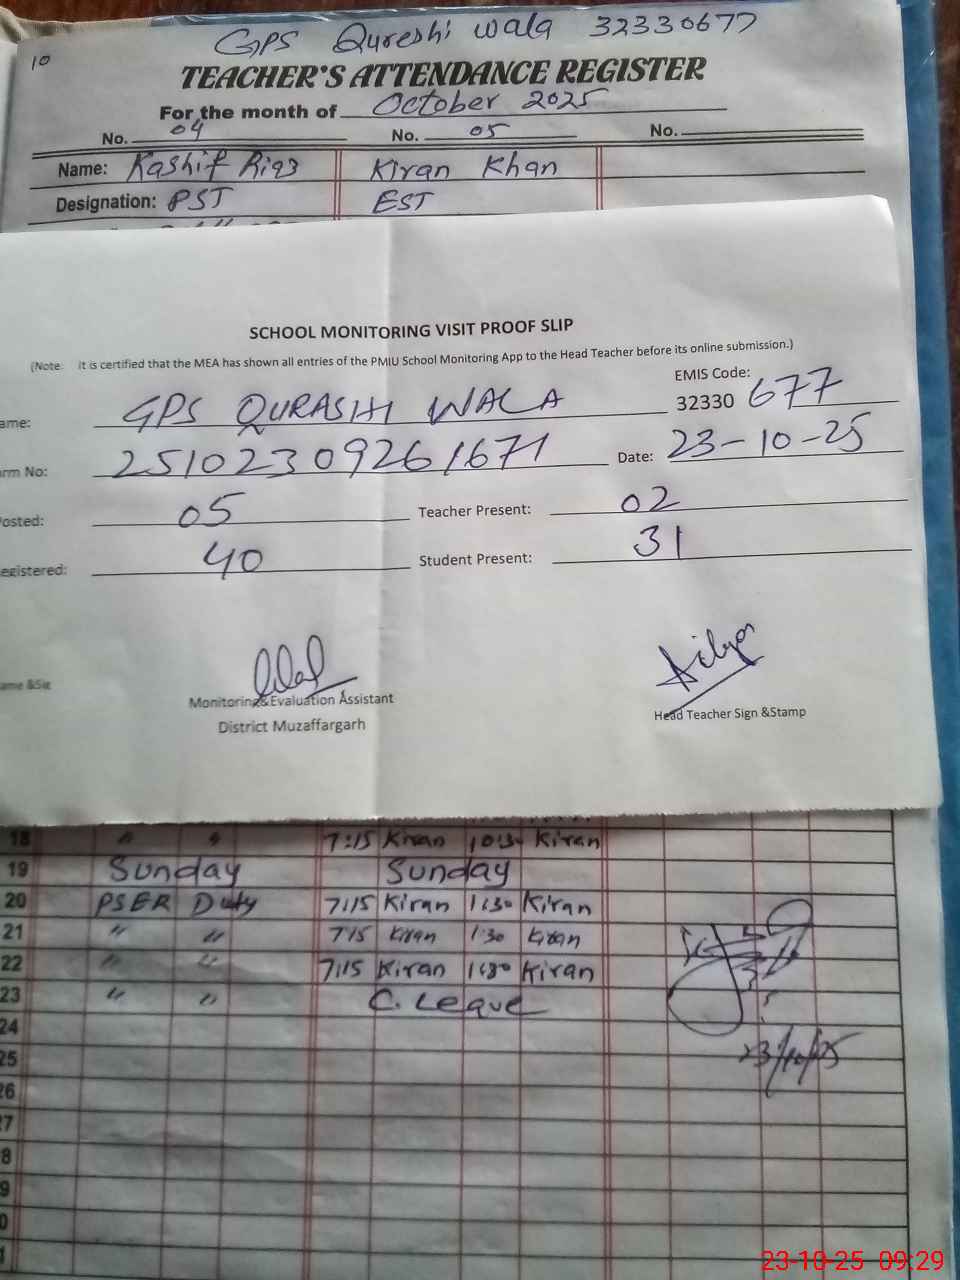 10
GPS Qureshi wala 32330677
TEACHER'S ATTENDANCE REGISTER
For the month of October 2025
No. 04 No. 05 No.
Name: Kashif Riaz Kiran Khan
Designation: PST EST
SCHOOL MONITORING VISIT PROOF SLIP
(Note: It is certified that the MEA has shown all entries of the PMIU School Monitoring App to the Head Teacher before its online submission.)
EMIS Code:
ame: GPS QURASHI WALA 32330 677
rm No: 25102309261671 Date: 23-10-25
osted: 05 Teacher Present: 02
egistered: 40 Student Present: 31
ame &Sig
Monitoring&Evaluation Assistant
District Muzaffargarh
Head Teacher Sign &Stamp
18 " " 7:15 Kiran 10:3 Kiran
19 Sunday Sunday
20 PSER Duty 7:15 Kiran 1:30 Kiran
21 " " 7:15 Kiran 1:30 Kiran
22 " " 7:15 Kiran 1:30 Kiran
23 " " C. Leave
24
25 23/10/25
26
7
8
9
0
1
23-10-25 09:29